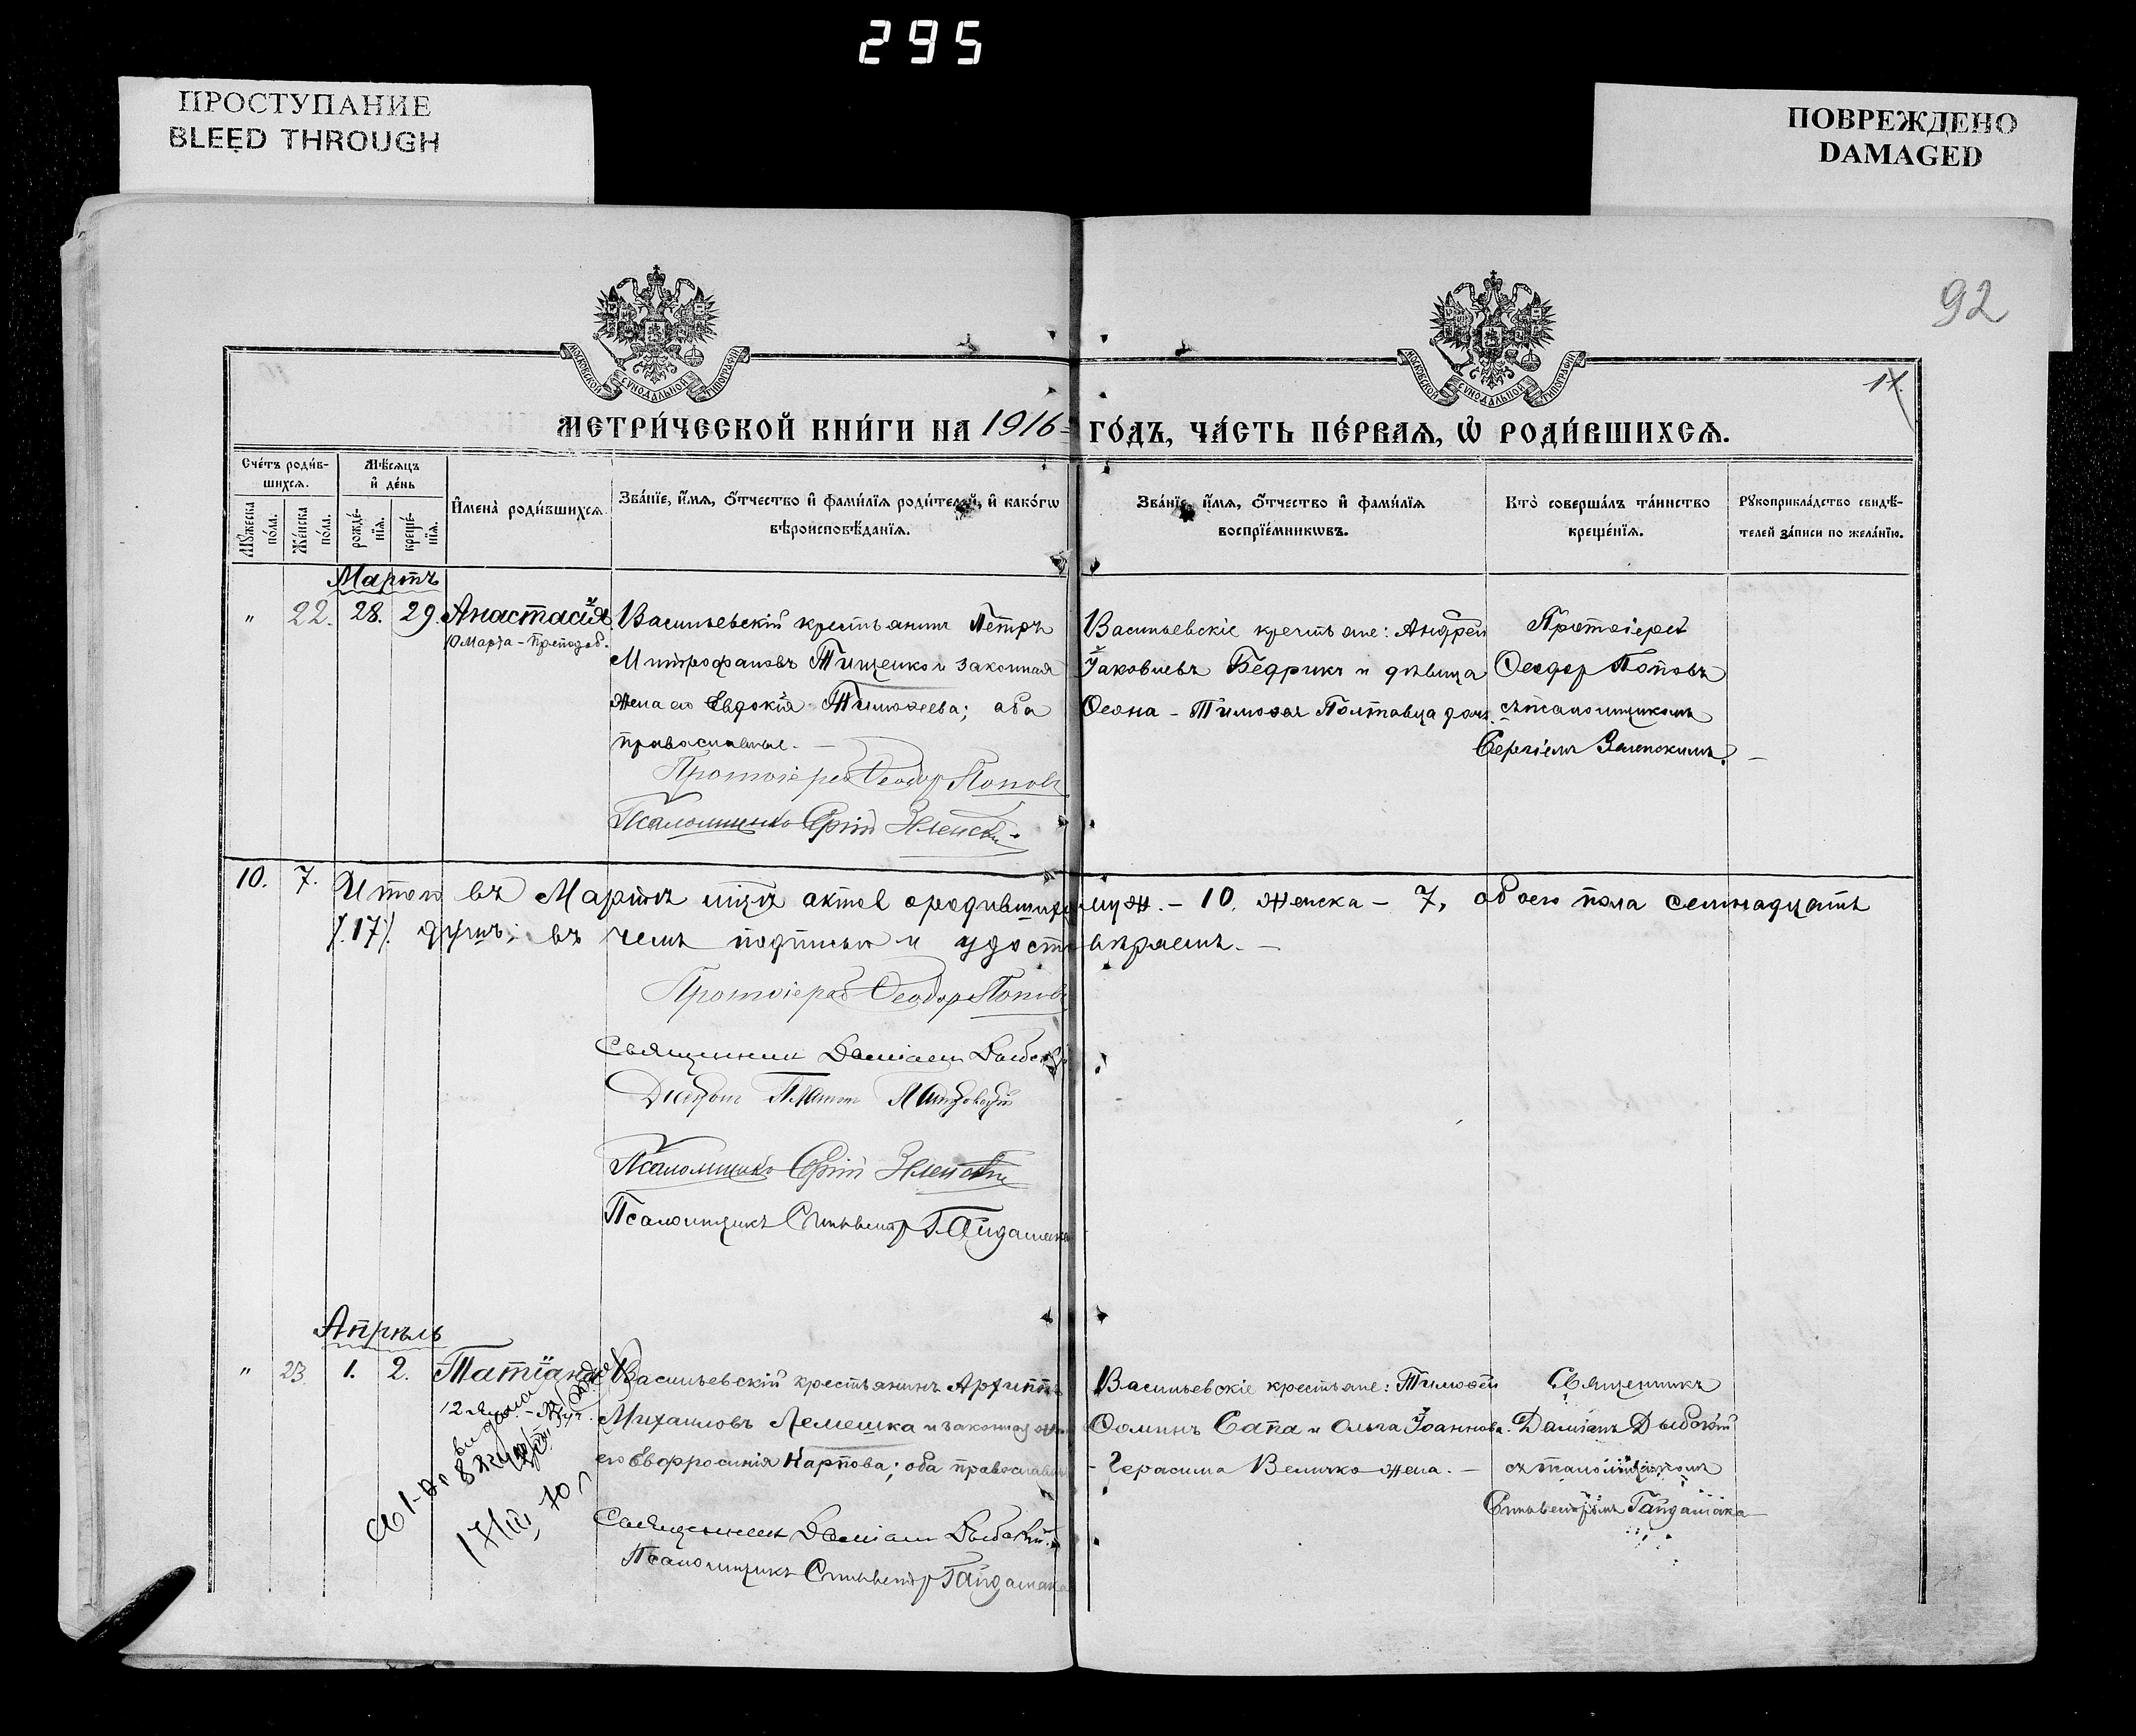 295
ПРОСТУПАНИЕ
BLEED THROUGH
ПОВРЕЖДЕНО
DAMAGED
92
МОСКОВСКОЙ СУНОДАЛЬНОЙ ТИПОГРАФІИ
МОСКОВСКОЙ СУНОДАЛЬНОЙ ТИПОГРАФІИ
МЕТРИ́ЧЕСКОЙ КНИ́ГИ НА 1916 ГО́ДЪ, ЧА́СТЬ ПЕ́РВАЯ, Ѡ РОДИ́ВШИХСЯ.
Сче́тъ роди́вшихся.
Мꙋ́жеска по́ла.
Же́нска по́ла.
Мѣ́сяцъ и҆ де́нь
рожде́нїѧ.
креще́нїѧ.
И҆мена̀ роди́вшихсѧ
Зва́нїе, и҆́мѧ, ѻ҆́тчество и҆ фами́лїѧ роди́телей, и҆ како́гѡ вѣроисповѣ́данїѧ.
Зва́нїе, и҆́мѧ, ѻ҆́тчество и҆ фами́лїѧ воспрїе́мникѡвъ.
Кто̀ соверша́лъ та́инство креще́нїѧ.
Рꙋкоприкла́дство свидѣ́телей за́писи по жела́нїю.
Мартъ
" 22. 28. 29. Анастасія
10 Марта - Преподоб.
Васильевскій крестьянинъ Петръ
Митрофановъ Тищенко и законная
жена его Евдокія Тимоѳеева; оба
православные.
Протоіерей Ѳеодор Попов
Псаломщикъ Сергій Зеленскій
Васильевскіе крестьяне: Андрей
Іаковлевъ Бедрикъ и дѣвица
Ѳеона - Тимоѳея Полтавца дочь.
Протоіерей
Ѳеодор Поповъ
съ псаломщикомъ
Сергіемъ Зеленскимъ.
10. 7. Итого въ Мартѣ мцѣ актов о родившихся муж. - 10. женска - 7, обоего пола семнадцать
/.17./ душъ; въ чемъ подписью и удостовѣряемъ.
Протоіерей Ѳеодор Попов
Священник Даміан
Псаломщикъ Сергій Зеленскій
Псаломщикъ Сильвестр Гайдамака
Апрѣль
" 23. 1. 2. Татіана
12 Янв.
17/III, 70
Васильевскій крестьянинъ Архиппъ
Михаиловъ Лемешка и законная жена
его Евфросинія Карпова; оба православные
Священник Даміан
Псаломщикъ Сильвестр Гайдамака
Васильевскіе крестьяне: Тимоѳей
Ѳоминъ Сапа и Ольга Іоаннова
- Герасима Величко жена. -
Священникъ
Даміанъ
съ псаломщикомъ
Сильвестромъ Гайдамака